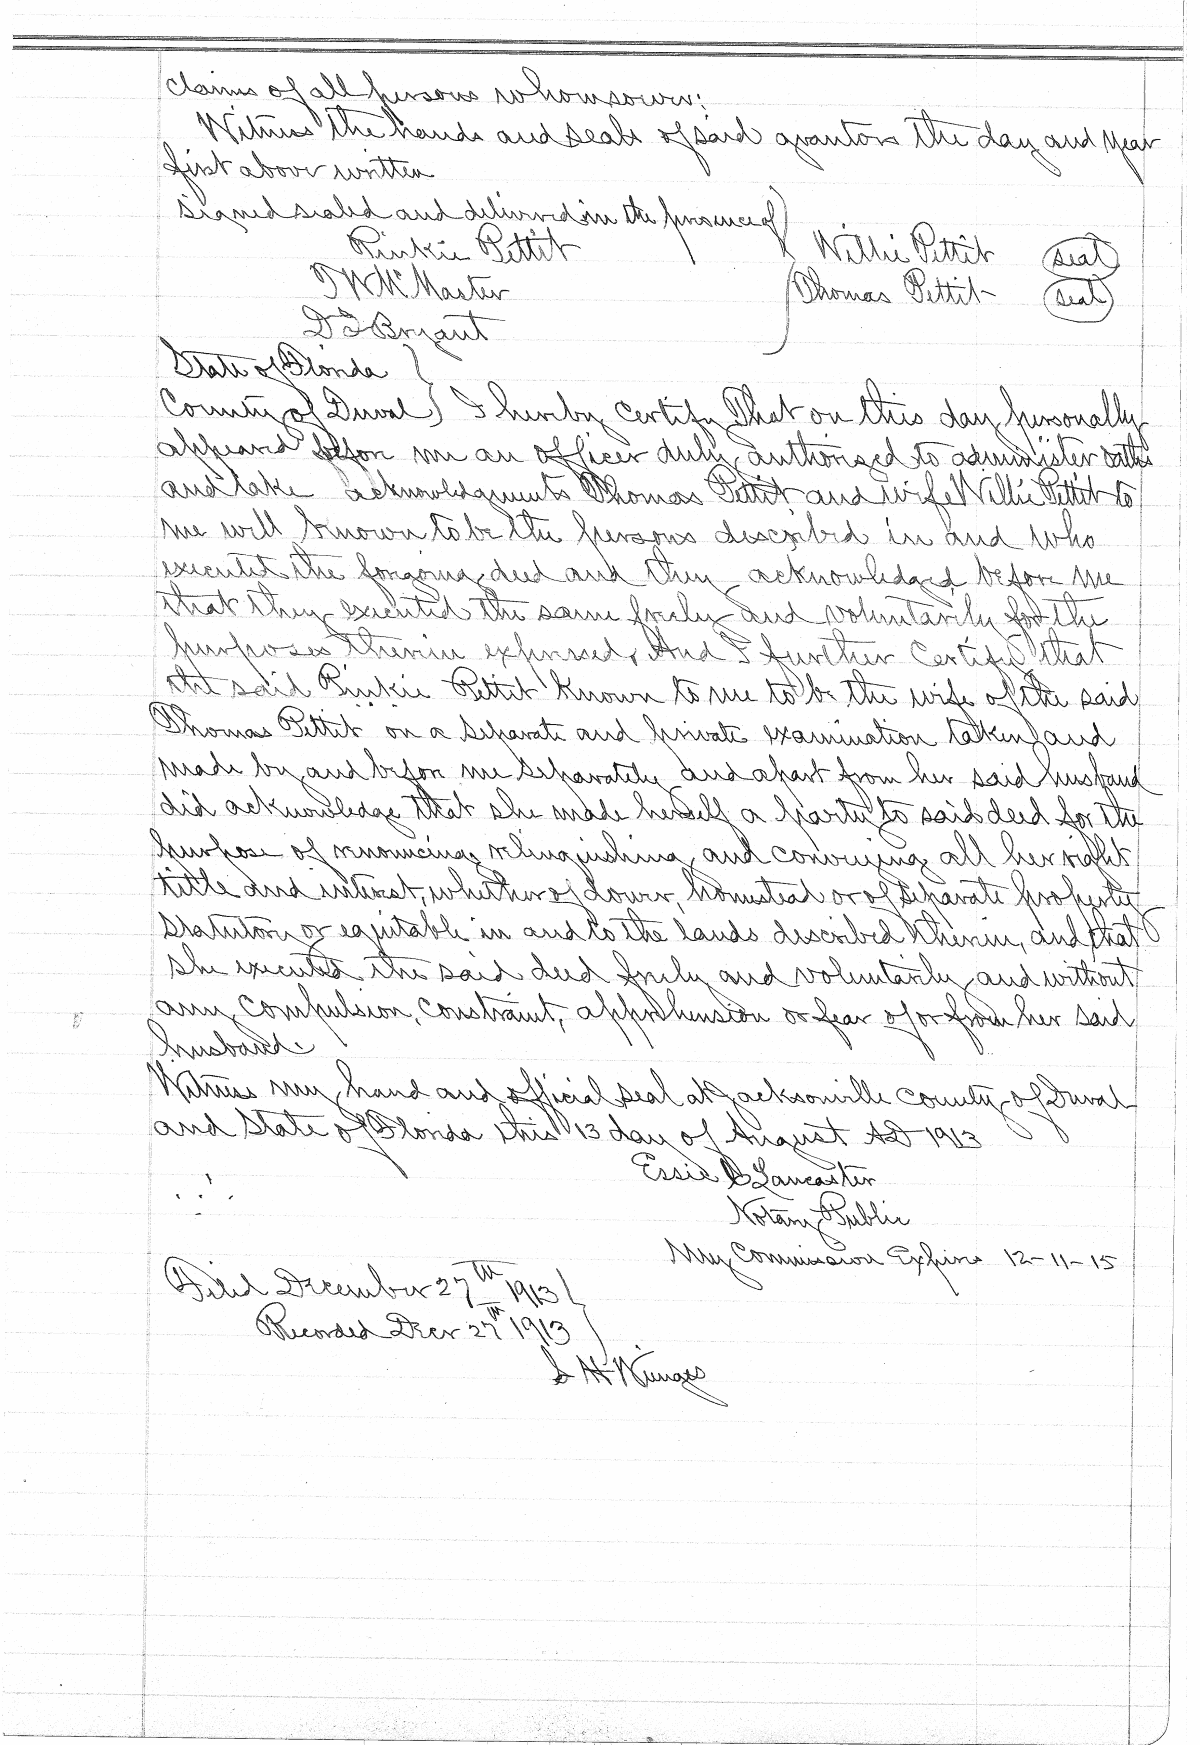 claims of all persons whomsoever;
Witness the hands and seals of said grantors the day and year
first above written
signed sealed and delivered in the presence of
Pinkie Pettit Willie Pettit (seal)
J W McMaster Thomas Pettit (seal)
D J Bryant
State of Florida
County of Duval) I hereby certify That on this day personally
appeared before me an officer duly authorized to administer oaths
and take acknowledgments Thomas Pettit and wife Willie Pettit to
me well known to be the persons described in and who
executed the forgoing deed and they acknowledged before me
that they executed the same freely and voluntarily for the
purposes therein expressed, And I further Certify that
the said Pinkie Pettit known to me to be the wife of the said
Thomas Pettit on a separate and private examination taken and
made by and before me separately and apart from her said husband
did acknowledge that she made herself a party to said deed for the
purpose of renouncing relinquishing and conveying all her right
title and interest, whether of dower, homestead or of separate property
statutory or equitable in and to the lands described therein, and that
she executed the said deed freely and voluntarily and without
any compulsion, constraint, apprehension or fear of or from her said
husband.
Witness my hand and official seal at Jacksonville county of Duval
and State of Florida this 13 day of August AD 1913
Essie B Lancaster
Notary Public
My Commission Expires 12-11-15
Filed December 27th 1913
Recorded Decr 27th 1913
S H